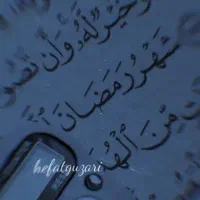 خَيْرٌ لَّهُۥ وَأَن
شَهْرُ رَمَضَانَ
مِّنَ
hefatguzari